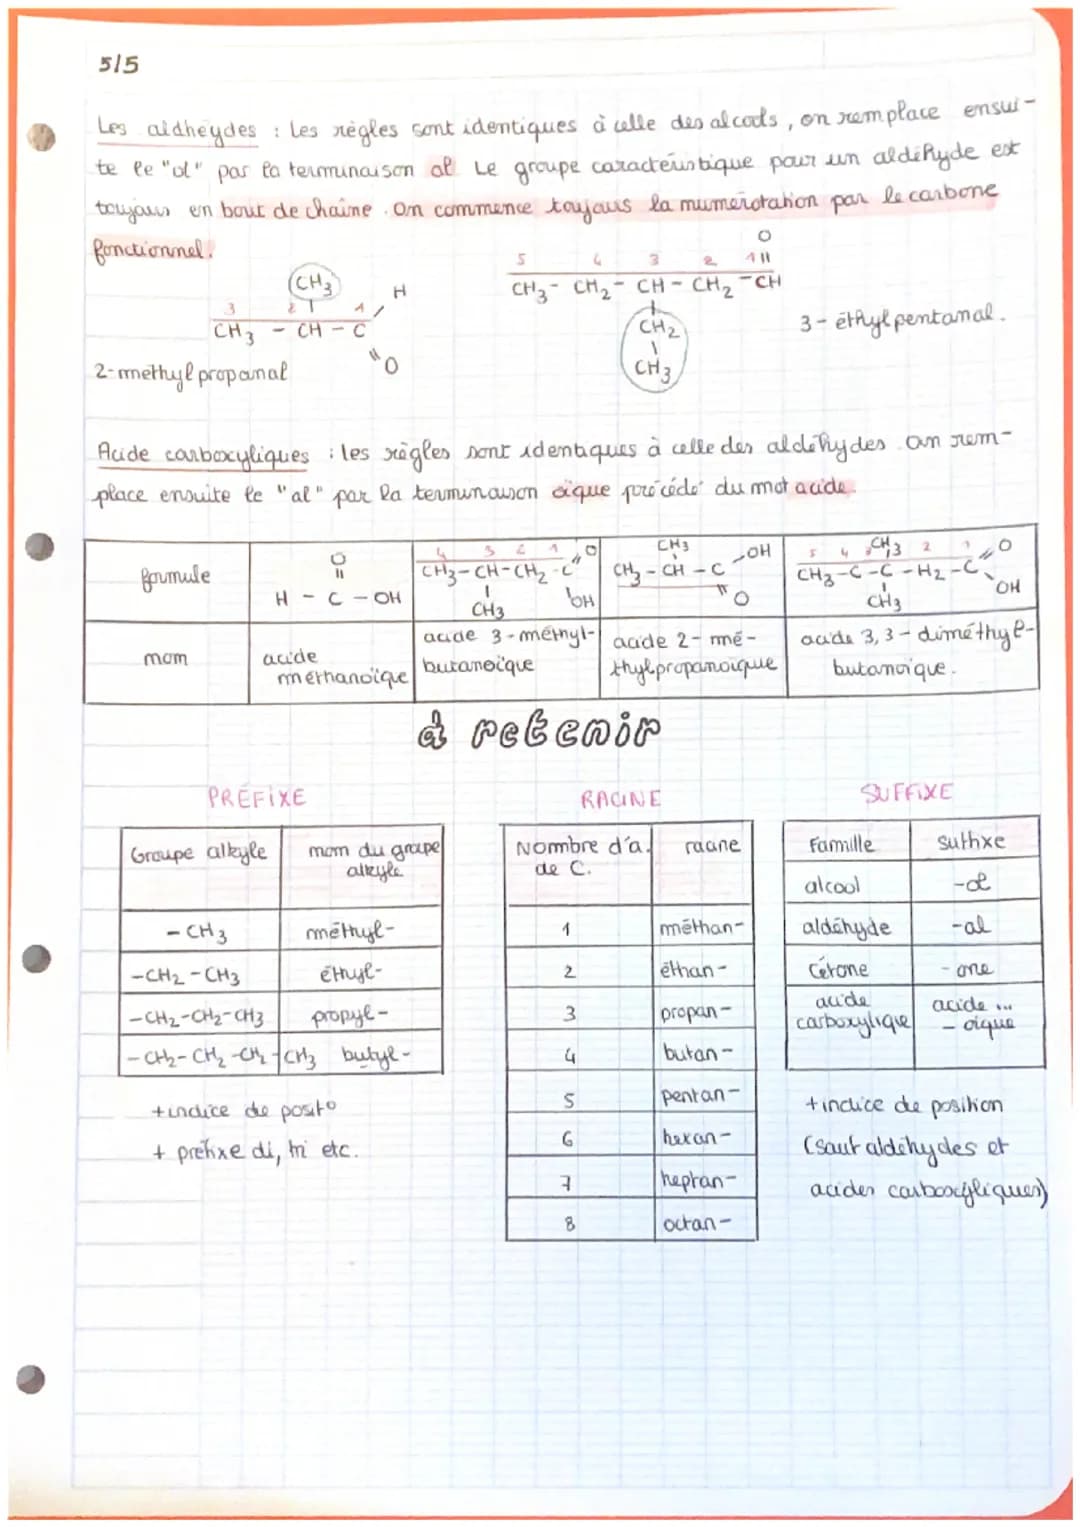 5/5
Les aldhéydes : les règles sont identiques à celle des alcools, on remplace ensui-
te le "ol" par la terminaison al. Le groupe caractéristique pour un aldéhyde est
toujours en bout de chaîne. On commence toujours la numérotation par le carbone
fonctionnel.
CH3 H
3 2 1
CH3 - CH - C
O
2-méthylpropanal
O
5 4 3 2 1 ||
CH3 - CH2 - CH - CH2 - CH
CH2
CH3
3-éthylpentanal.
Acide carboxyliques : les règles sont identiques à celle des aldéhydes. on rem-
place ensuite le "al" par la terminaison oïque précédé du mot acide.
formule
O
||
H - C - OH
4 3 2 1 O
CH3-CH-CH2-C
CH3 OH
CH3 OH
CH3 - CH - C
O
5 4 3 CH3 2 1 O
CH3-C-C-H2-C
CH3 OH
nom
acide méthanoïque
acide 3-méthyl-
butanoïque
acide 2-mé-
thylpropanoïque
acide 3,3-diméthyl-
butanoïque.
à retenir
PRÉFIXE
Groupe alkyle nom du grape
alkyle
-CH3 méthyl-
-CH2-CH3 éthyl-
-CH2-CH2-CH3 propyl-
-CH2-CH2-CH2-CH3 butyl-
+indice de posit°
+ préfixe di, tri etc.
RACINE
Nombre d'a. racine
de C.
1 méthan-
2 éthan-
3 propan-
4 butan-
5 pentan-
6 hexan-
7 heptan-
8 octan-
SUFFIXE
Famille suffixe
alcool -ol
aldéhyde -al
Cétone -one
acide acide ...
carboxylique - oïque
+indice de position
(sauf aldéhydes et
acides carboxyliques)